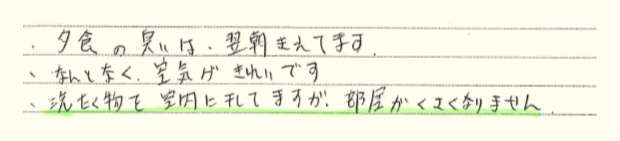 ・夕食の臭いは、翌朝きえてます。
・なんとなく、空気がきれいです
・洗たく物を室内に干してますが、部屋がくさくなりません。